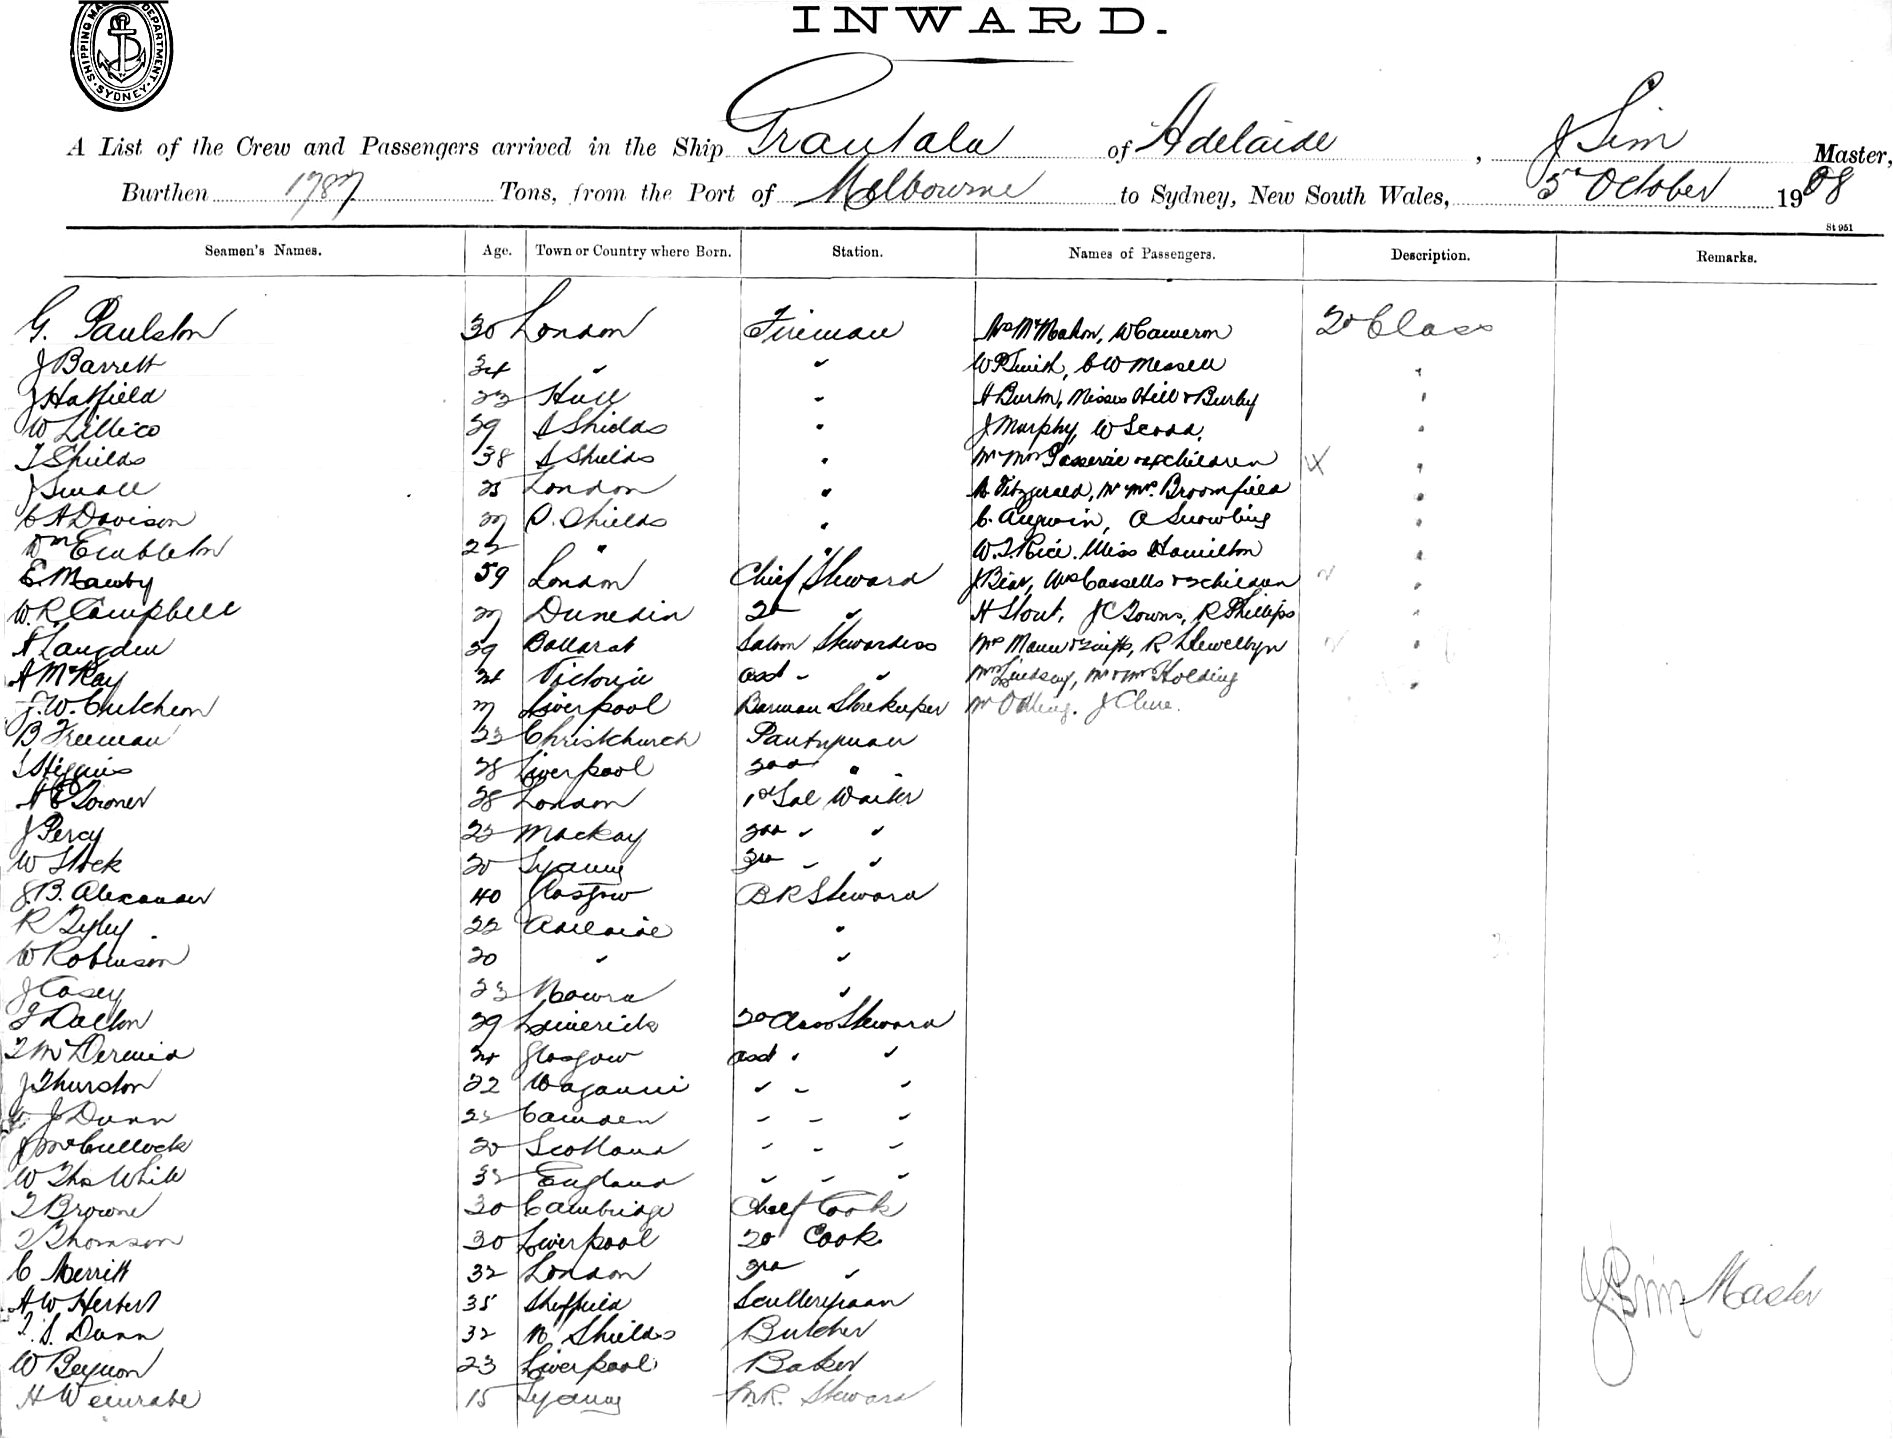 SHIPPING MA DEPARTMENT. SYDNEY.
INWARD.
A List of the Crew and Passengers arrived in the Ship Grantala of Adelaide, J Sim Master,
Burthen 1787 Tons, from the Port of Melbourne to Sydney, New South Wales, 5th October 1908
St 951
Seamen's Names. Age. Town or Country where Born. Station. Names of Passengers. Description. Remarks.
G. Paulston 30 London Fireman Mrs McMahon, W Cameron 2d Class
J Barrett 34 " " W P Smith, C W Messell "
J Hatfield 23 Hull " A Burton, Misses Hill & Burby "
W Lillico 39 S Shields " J Murphy, W "
T Shields 38 S Shields " Mr Mrs & 4 children "
J Small 25 London " Fitzgerald, Mr Mrs. Broomfield "
C A Davison S. Shields " C. Angwin, A Snowling "
Wm Embleton 22 " " W. T. Rice. Miss Hamilton "
E. Mawby 59 London Chief Steward J Bear, Mrs Cassells & 2 children "
W. R. Campbell Dunedin 2d " H Stout, J C Towns, R Phillips "
A Langden 39 Ballarat Saloon Stewardess Mrs Mann &, R Llewellyn "
A McKay 24 Victoria asst " " Mrs Lindsay, Mr & Mrs Holding "
J. W. Cutcheon Liverpool Barman Storekeeper Mr Odling. J Clune.
B Freeman 23 Christchurch Pantryman
J Higgins 28 Liverpool 2nd "
A E Toroner 28 London 1st Sal Waiter
J Percy 23 Mackay 2nd " "
W Stock 20 Sydney 3rd " "
J. B. Alexander 40 Glasgow B R Steward
R Tyley 22 Adelaide "
W Robinson 20 " "
J Casey 23 Nowra "
T Dalton 29 Limerick 2d Class Steward
T McDermid 24 Glasgow asst " "
J Thurston 22 Waganui " " "
J Dunn 22 Camden " " "
J McCullock 20 Scotland " " "
W Thos White 32 England " " "
T Browne 30 Cambridge Chief Cook
T Thomson 30 Liverpool 2d Cook
C Merritt 32 London 3rd "
A W Herbert 35 Sheffield Sculleryman
T. S. Dunn 32 N. Shields Butcher
W Beynon 23 Liverpool Baker
H Weinrabe 15 Sydney M. R. Steward
J Sim Master